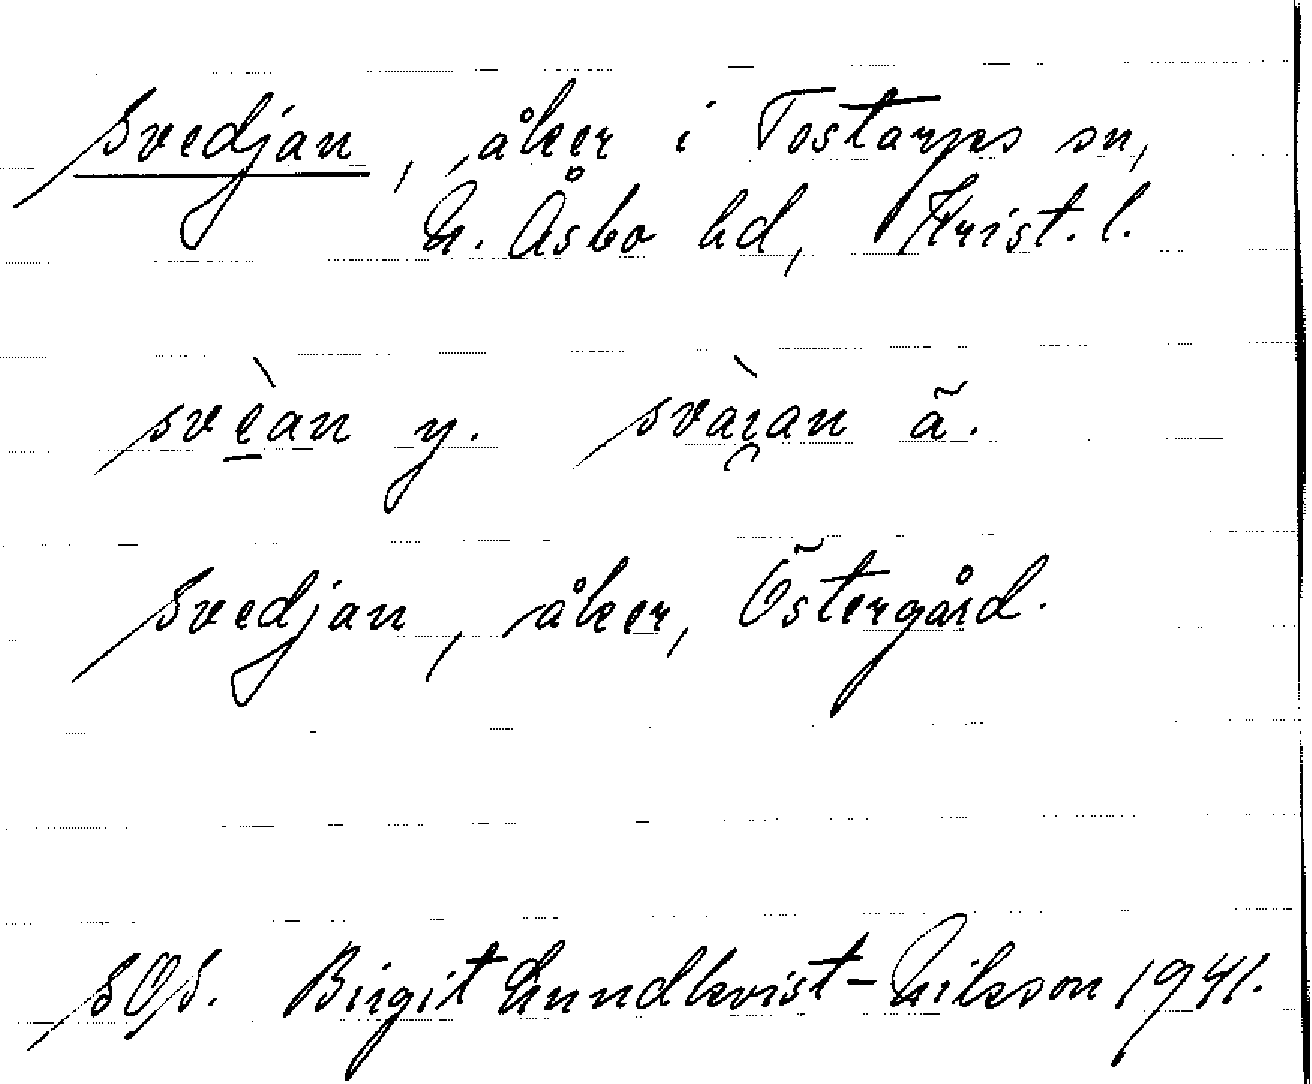 Svedjan, åker i Tostarps sn,
N. Åsbo hd, Krist. l.
svèan y. svàɪ̯an ä.
Svedjan, åker, Östergård.
SOS. Birgit Lundkvist-Nilsson 1941.